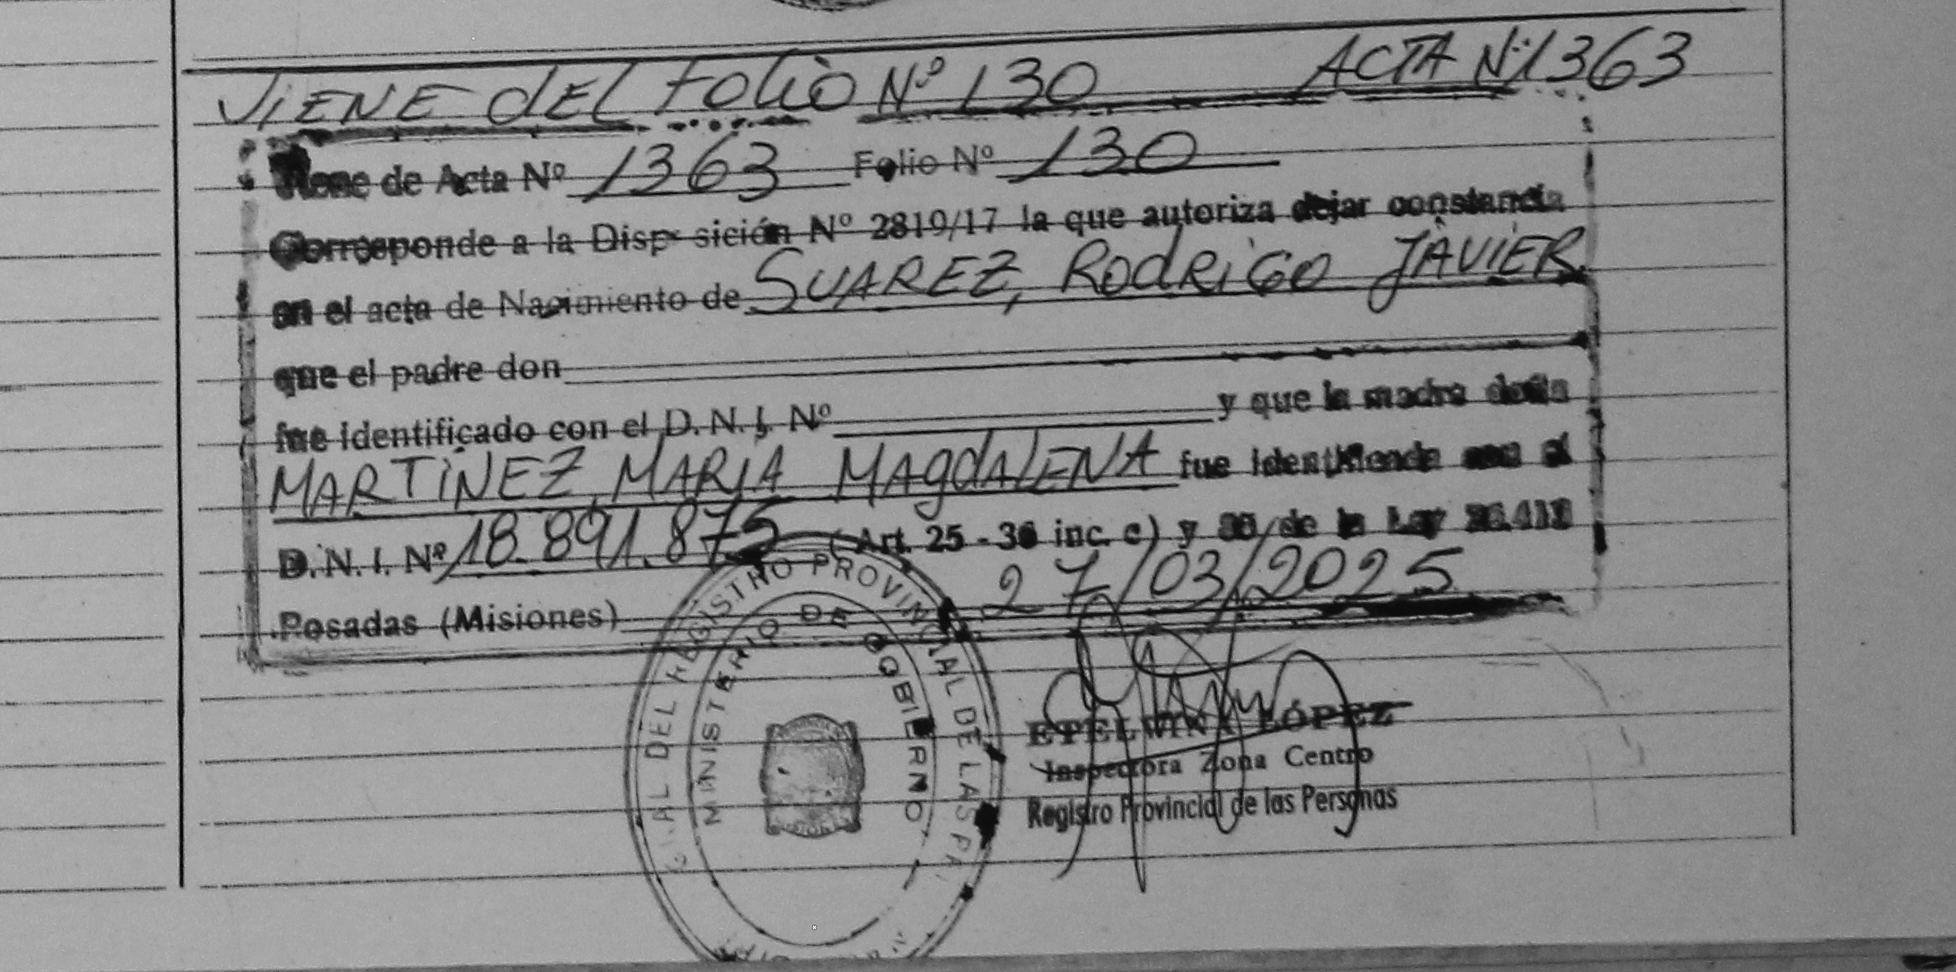 VIENE DEL FOLIO Nº 130 ACTA Nº 1363
Viene de Acta Nº 1363 Folio Nº 130
Corresponde a la Disposición Nº 2819/17 la que autoriza dejar constancia
en el acta de Nacimiento de SUAREZ, RODRIGO JAVIER
que el padre don
fue identificado con el D.N.I. Nº y que la madre doña
MARTINEZ, MARIA MAGDALENA fue identificada con el
D.N.I. Nº 18.891.875 (Art. 25 - 36 inc. c) y de la Ley
Posadas (Misiones) 27/03/2025
REGISTRO PROVINCIAL DE LAS
MINISTERIO DE GOBIERNO
ETELVINA LÓPEZ
Inspectora Zona Centro
Registro Provincial de las Personas